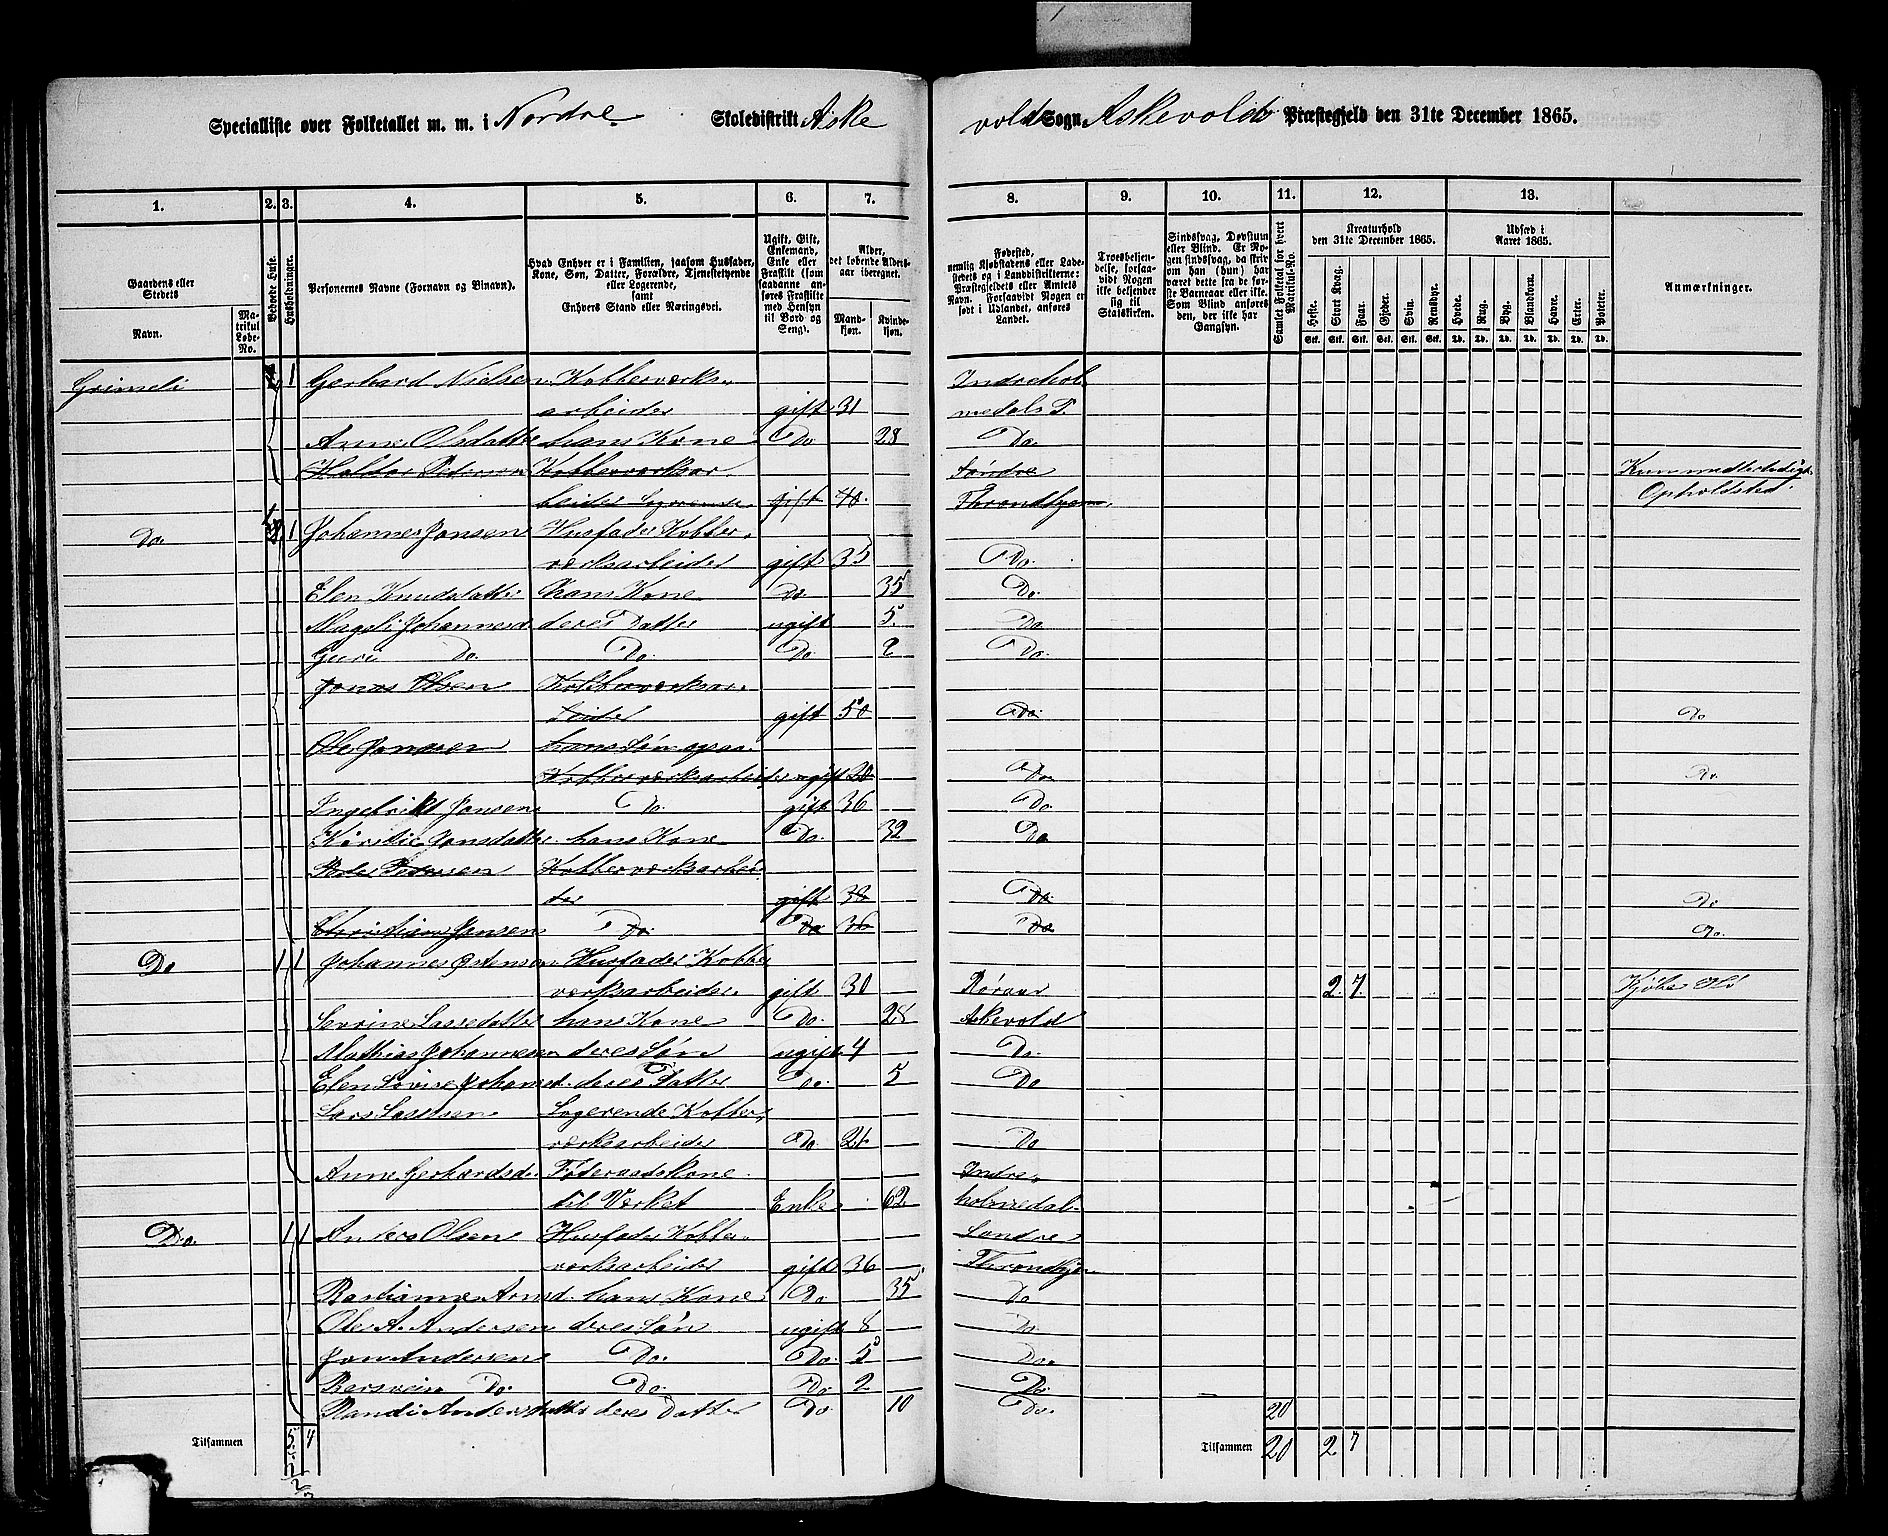 Specialliste over Folketallet m. m. i Nordre Skoledistrikt Aske
vold Sogn Askevold Præstegjeld den 31te December 1865.
1. 2. 3. 4. 5. 6. 7. 8. 9. 10. 11. 12. 13.
Gaardens eller Stedets
Navn.
Matrikul Løbe-No.
Bebøede Huse.
Husholdninger.
Personernes Navne (Fornavn og Binavn).
Hvad Enhver er i Familien, saasom Husfader, Kone, Søn, Datter, Forældre, Tjenestetyende eller Logerende,
samt
Enhvers Stand eller Næringsvei.
Ugift, Gift, Enkemand, Enke eller Fraskilt (som saadanne anføres Fraskilte med Hensyn til Bord og Seng).
Alder,
det løbende Alders-
aar iberegnet.
Mandkjøn.
Kvindekjøn.
Fødested,
nemlig Kjøbstadens eller Ladestedets og i Landdistrikterne: Præstegjeldets eller Amtets Navn. Forsaavidt Nogen er født i Udlandet, anføres Landet.
Troesbekjendelse, forsaavidt Nogen ikke bekjender sig til Statskirken.
Sindssvag, Døvstum eller Blind. Er Nogen sindssvag, da skrives om han (hun) har været dette fra de første Barneaar eller ikke. Som Blind anføres den, der ikke har Gangsyn.
Samlet Folketal for hvert Matrikul-No.
Kreaturhold
den 31te December 1865.
Heste. Stort Kvæg. Faar. Gjeder. Sviin. Rensdyr.
Udsæd i
Aaret 1865.
Hvede. Rug. Byg. Blandkorn. Havre. Erter. Poteter.
Anmærkninger.
Grimeli 1 Gerhard Nielsen Kobberværks- Indrehol-
arbeider gift 31 medals P.
Anne Olsdatter hans Kone Do 28 Do.
Haldor Pedersen Kobberværksar Søndre Kun midlertidigt
beider Logerende gift 40 Throndhjem. Opholdsted.
Do. 1 Johannes Jonsen Husfader Kobber-
værksarbeider gift 35 Do.
Elen Knudsdatter hans Kone Do 35 Do.
Mageli Johannesd deres Datter ugift 5 Do
Guru Do. Do. Do. 2 Do.
Jonas Olsen Kobberværksar-
beider gift 50 Do. Do
Ole Jonasen hans Søn ogsaa
Kobberværksarbeider ugift 20 Do. Do.
Ingebrikt Jonsen Do. gift 36 Do.
Kirstie Jonsdatter hans Kone Do. 32 Do
Peder Pedersen Kobberværksarbei
der gift 38 Do. Do
Christian Jensen Do Do 36 Do Do.
Do 1 1 Johannes Ostensen Husfader Kobber
værksarbeider gift 30 Røraas 2. 7.
Sevrine Lassedatter hans Kone Do. 28 Askevold
Mathias Johannesen deres Søn ugift 4 Do.
Elen Lovise Johannesd. deres Datter Do. 5 Do
Lars Lassesen Logerende Kobber-
værksarbeider Do. 21 Do
Anne Gerhardsd. Føderaadskone Indre-
til Værket Enke 62 holmedal.
Do. 1 1 Anders Olsen Husfader Kobber- Søndre
værksarbeider gift 36 Throndhjem
Bastianne Arnsd. hans Kone Do 35 Do
Ole A. Andersen deres Søn ugift 8 Do.
Jon Andersen Do. Do. 5 Do.
Bersvein Do. Do. Do 2 Do.
Randi Andersdatter deres Datter Do 10 Do. 20
Tilsammen 5 4 Tilsammen 20 2 7